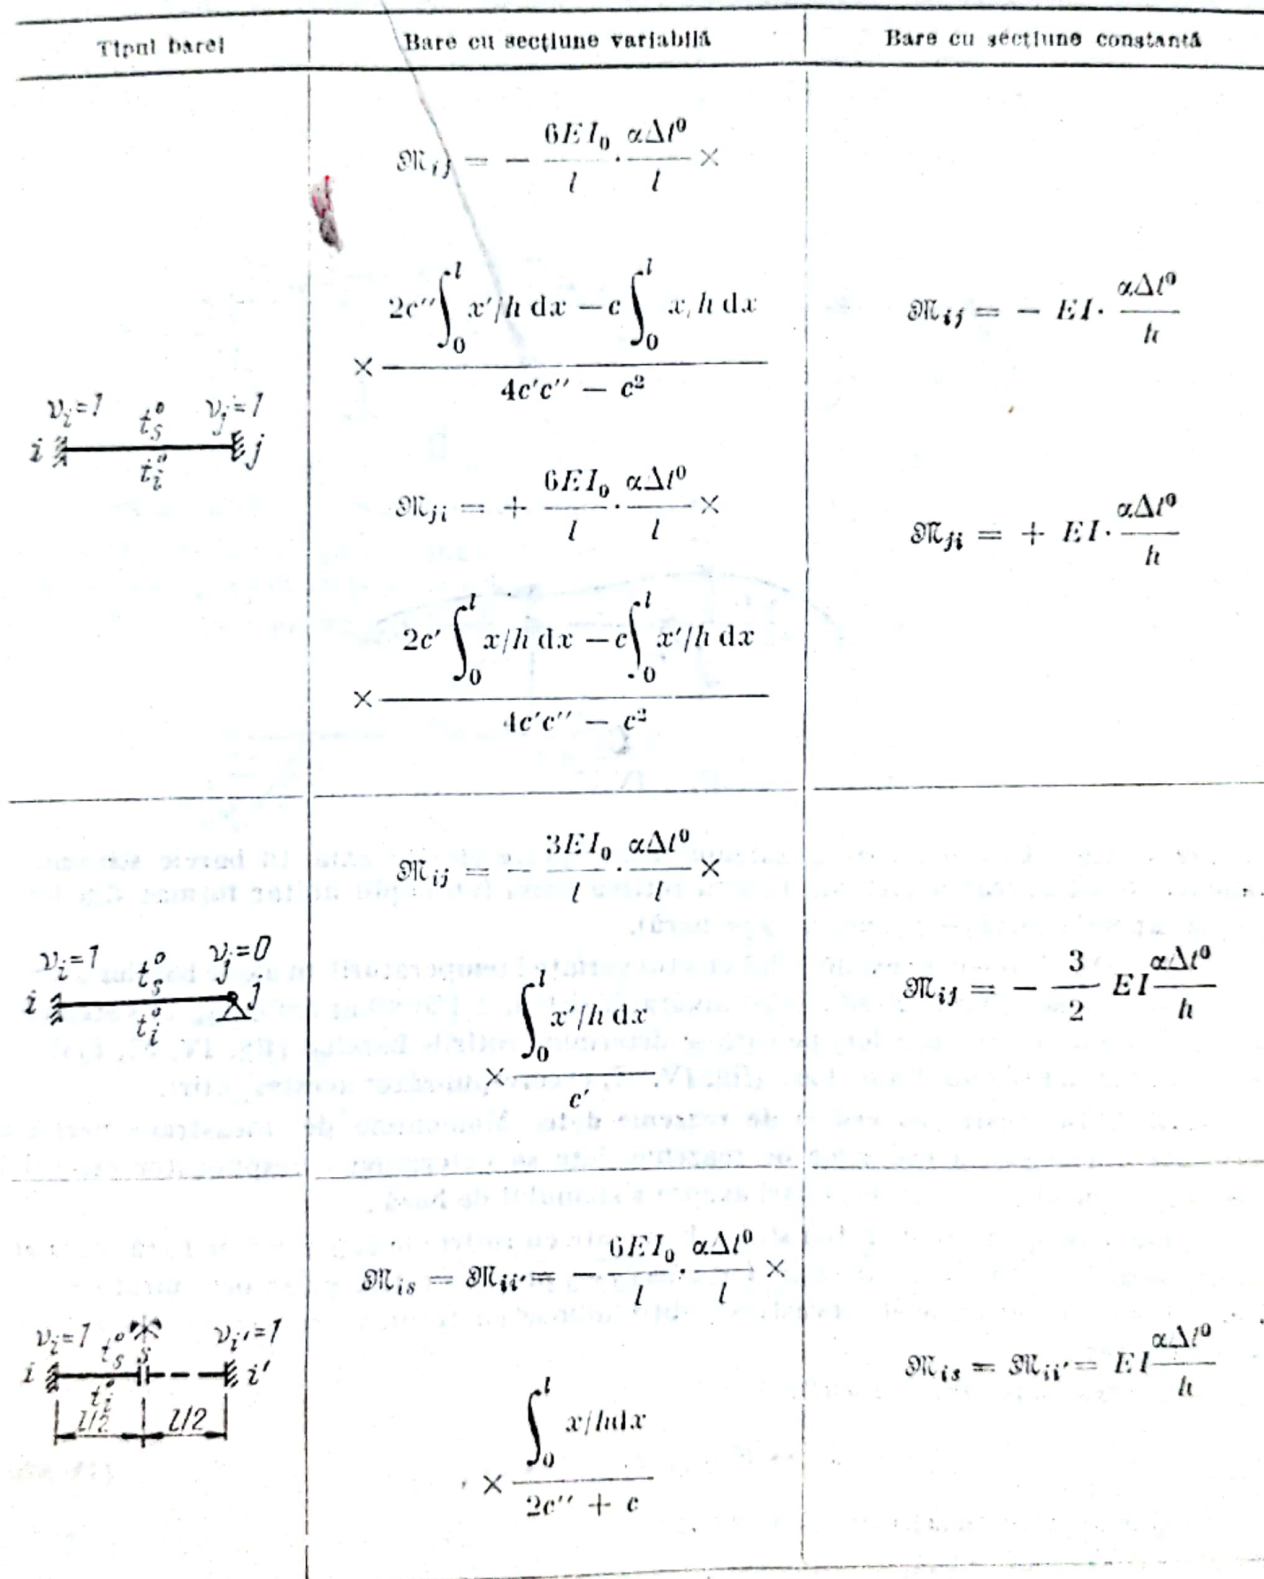 Tipul barei
Bare cu secțiune variabilă
Bare cu secțiune constantă
νᵢ=1 tₛ⁰ νⱼ=1
i tᵢ⁰ j
𝔐ᵢⱼ = − 6EI₀/l · αΔt⁰/l ×
× (2c″ ∫₀ˡ x′/h dx − c ∫₀ˡ x/h dx) / (4c′c″ − c²)
𝔐ⱼᵢ = + 6EI₀/l · αΔt⁰/l ×
× (2c′ ∫₀ˡ x/h dx − c ∫₀ˡ x′/h dx) / (4c′c″ − c²)
𝔐ᵢⱼ = − EI · αΔt⁰/h
𝔐ⱼᵢ = + EI · αΔt⁰/h
νᵢ=1 tₛ⁰ νⱼ=0
i tᵢ⁰ j
𝔐ᵢⱼ = − 3EI₀/l · αΔt⁰/l ×
× (∫₀ˡ x′/h dx) / c′
𝔐ᵢⱼ = − 3/2 EI αΔt⁰/h
νᵢ=1 tₛ⁰ s νᵢ′=1
i tᵢ⁰ i′
l/2 l/2
𝔐ᵢₛ = 𝔐ᵢᵢ′ = − 6EI₀/l · αΔt⁰/l ×
× (∫₀ˡ x/h dx) / (2c″ + c)
𝔐ᵢₛ = 𝔐ᵢᵢ′ = EI αΔt⁰/h